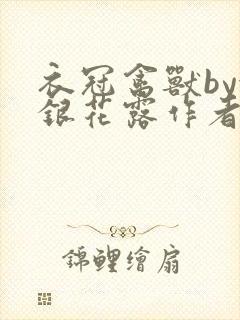 衣冠禽獸by
銀花露作者
錦鯉繪扇